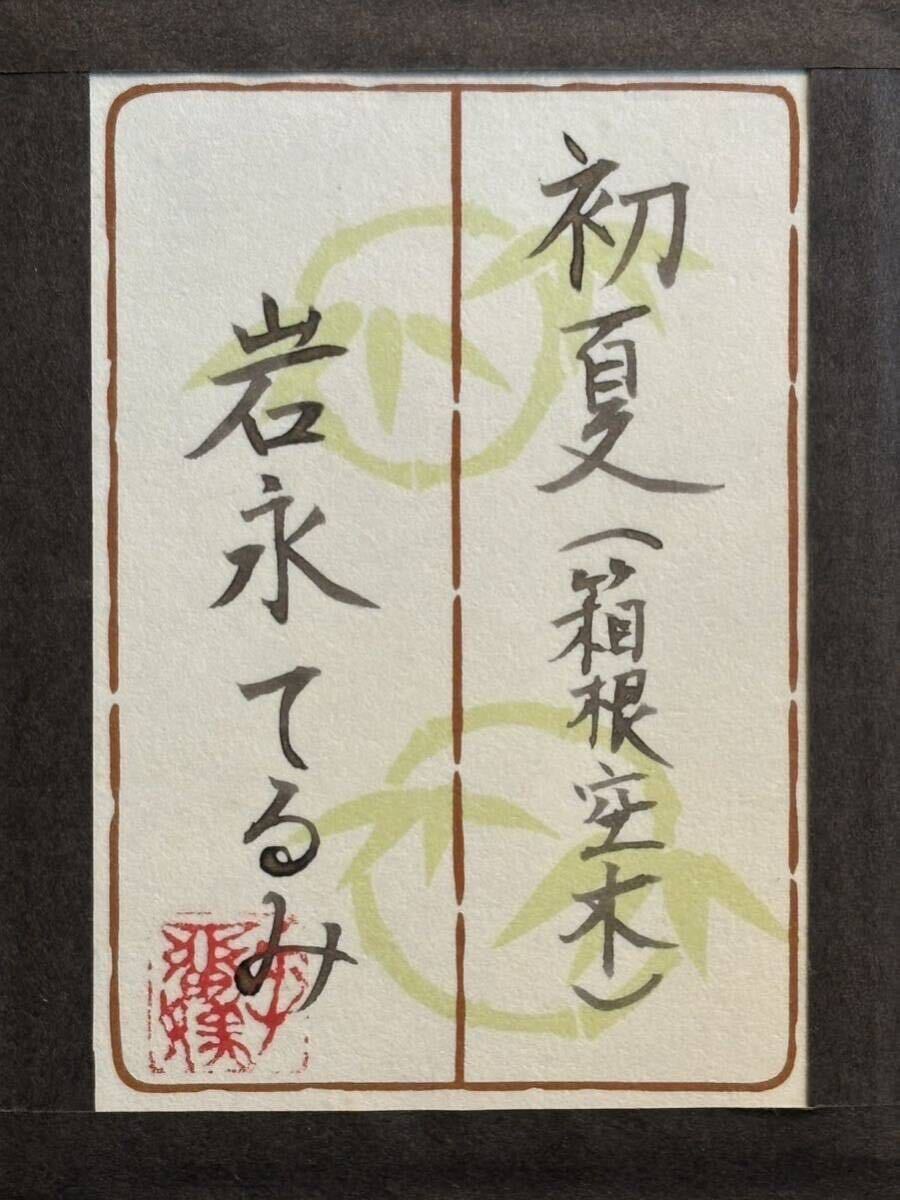 初夏（箱根空木）
岩永てるみ